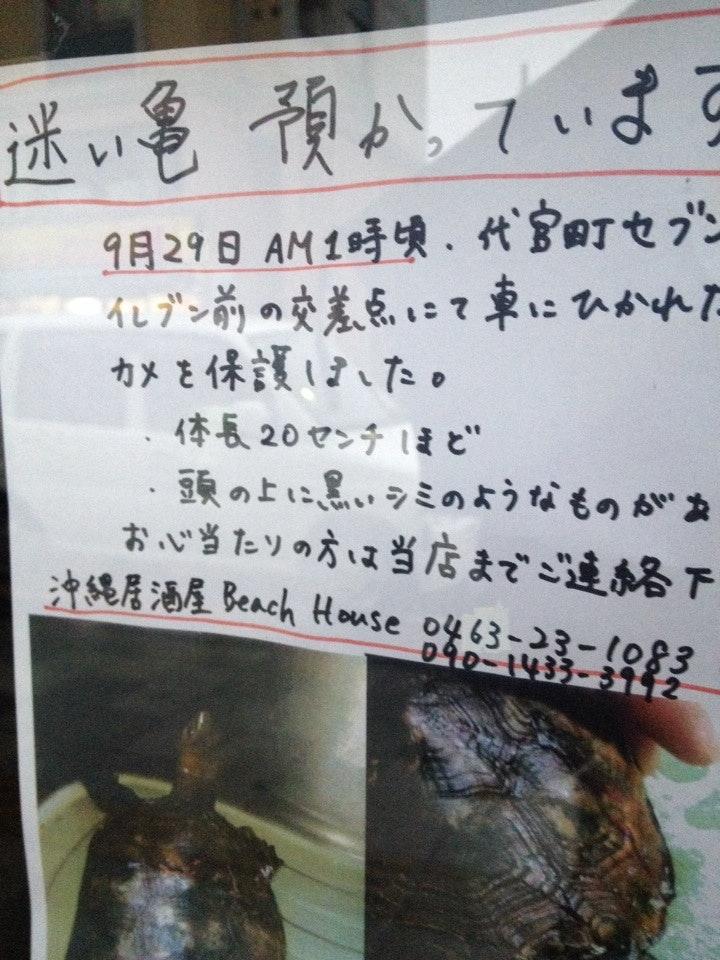 迷い亀 預かっています
9月29日 AM1時頃、代官町セブン
イレブン前の交差点にて車にひかれた
カメを保護しました。
・体長20センチほど
・頭の上に黒いシミのようなものがあ
お心当たりの方は当店までご連絡下
沖縄居酒屋 Beach House 0463-23-1083
090-1433-3992